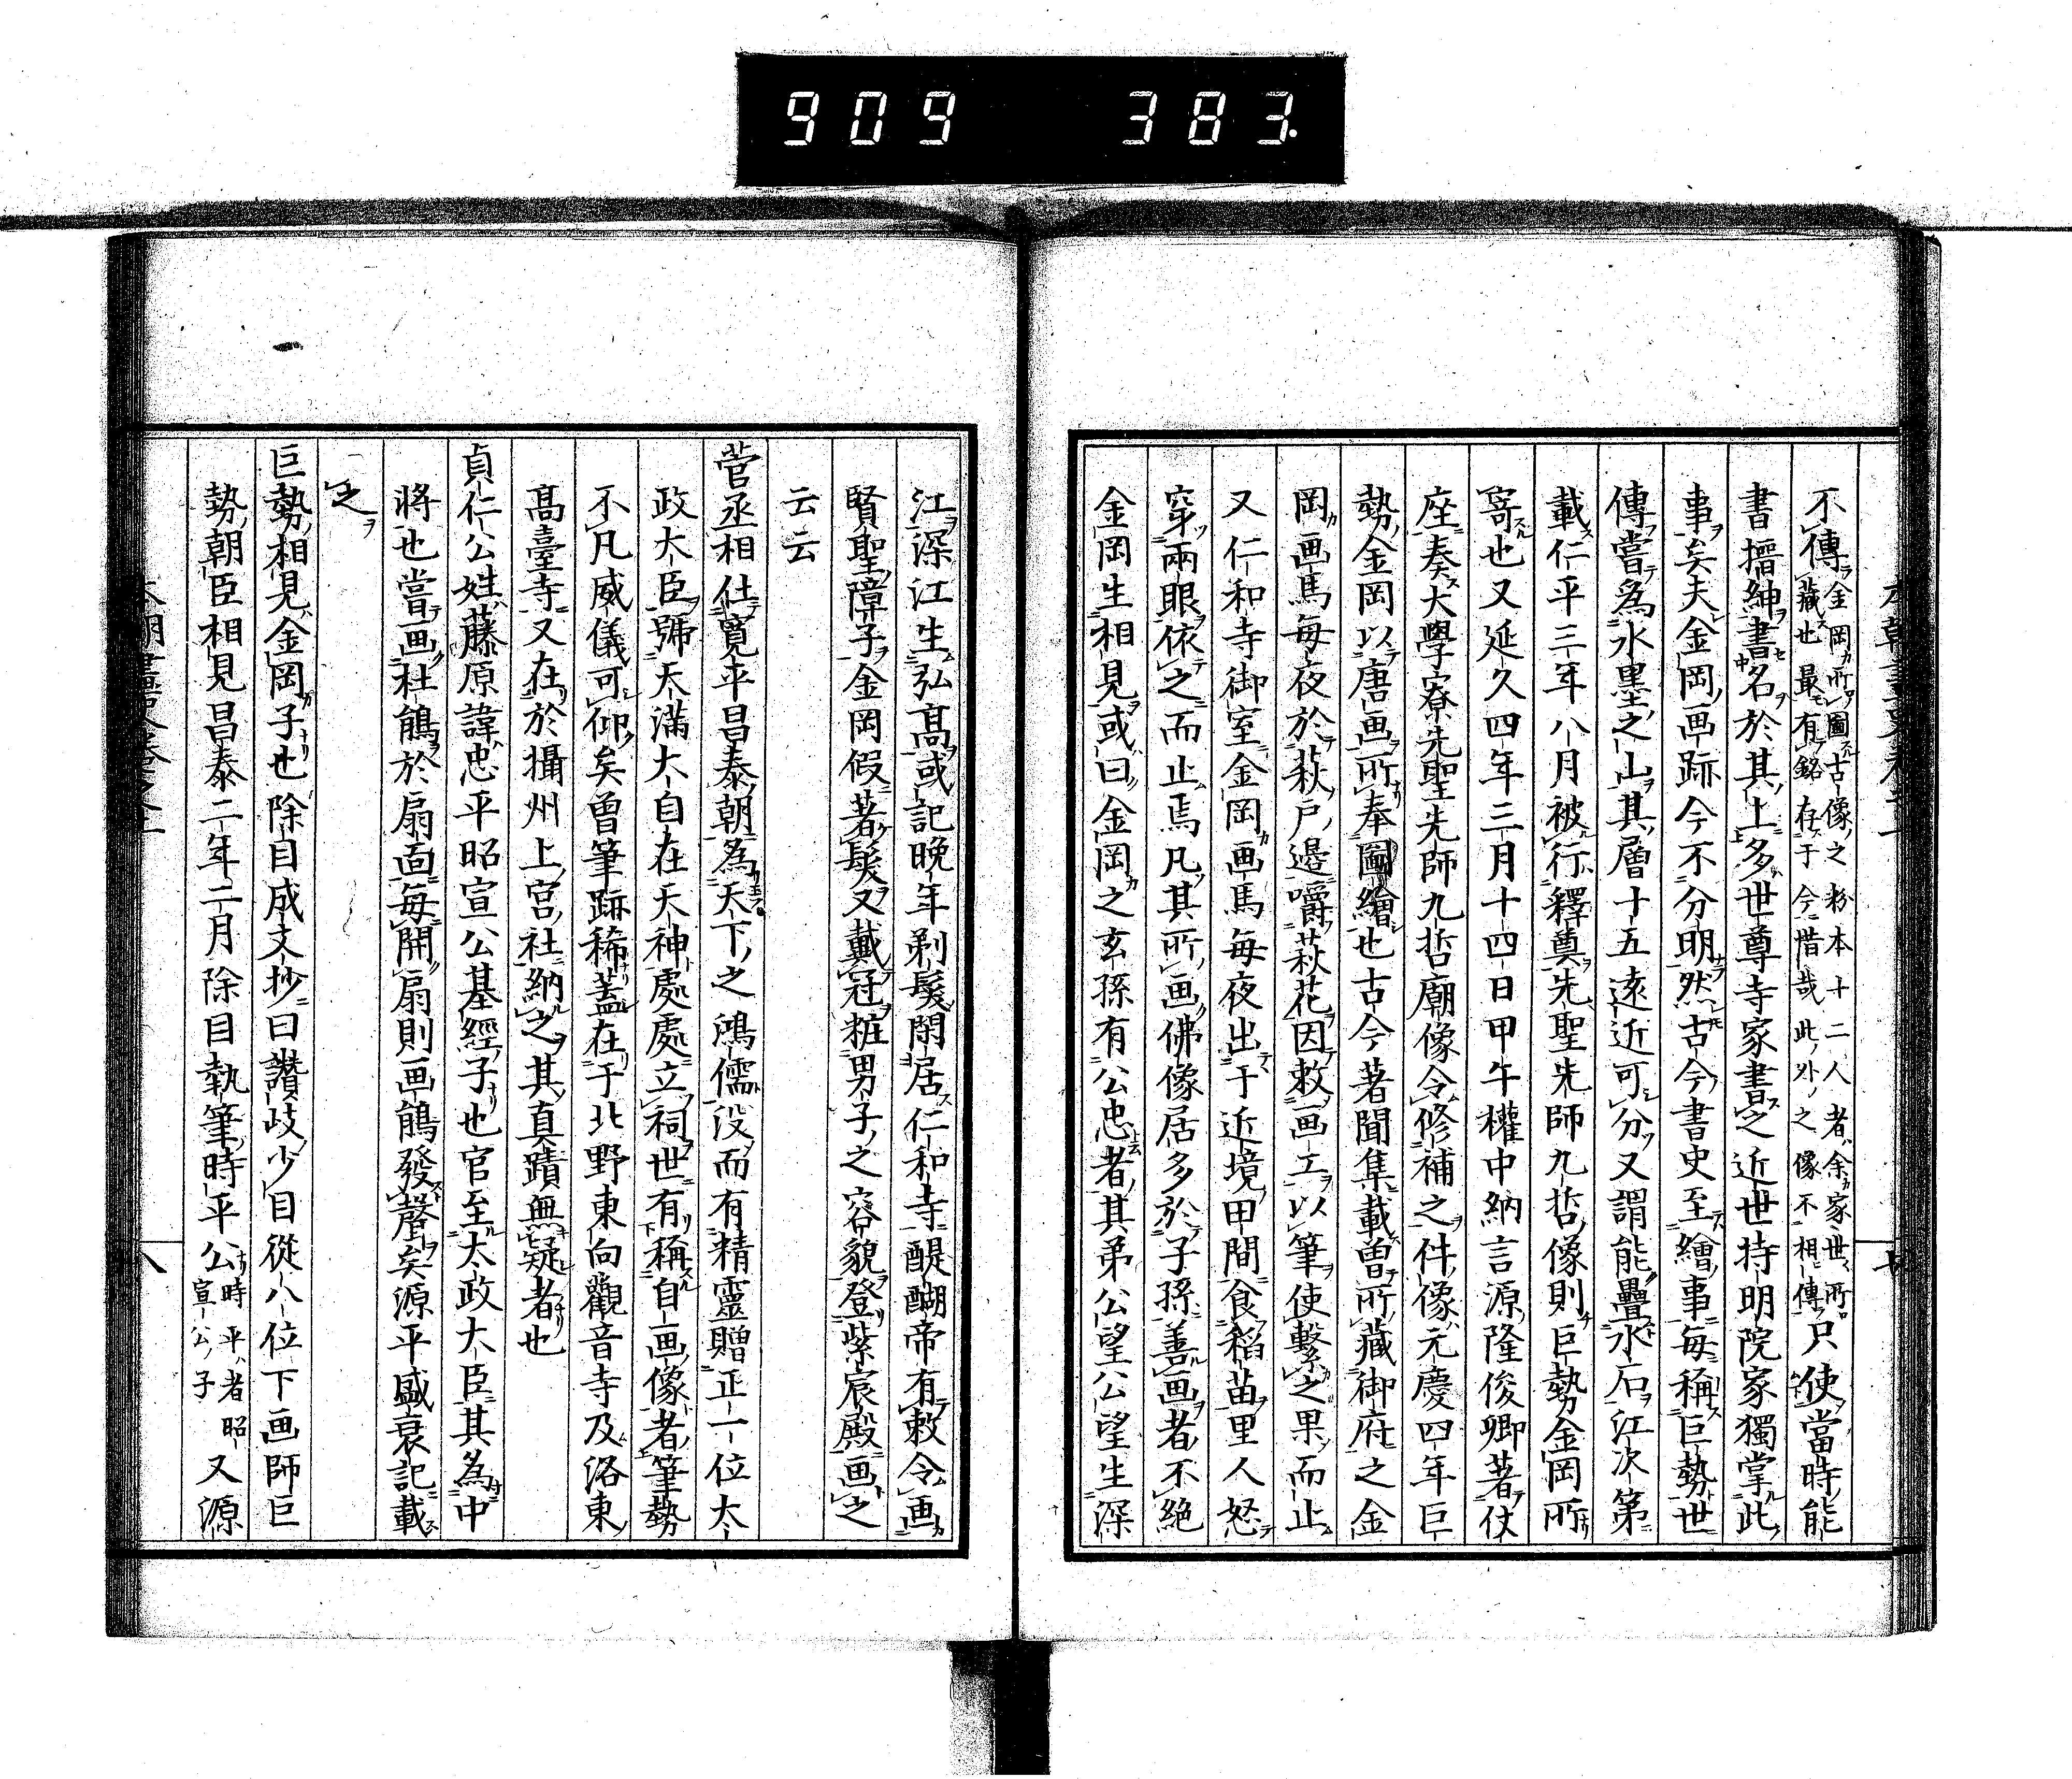 909 383.
不傳金岡所圖古像之粉本十二人者余家世所
藏也最有銘存于今惜哉此外之像不相傳只使當時能
書搢紳書名於其上多世尊寺家書之近世持明院家獨掌此
事矣夫金岡画跡今不分明然古今書史至繪事每稱巨勢世
傳嘗為水墨之山其層十五遠近可分又謂能疊水石江次第
載仁平三年八月被行釋奠先聖先師九哲像則巨勢金岡所
寄也又延久四年三月十四日甲午權中納言源隆俊卿著仗
座奏大學寮先聖先師九哲廟像令修補之件像元慶四年巨
勢金岡以唐画所奉圖繪也古今著聞集載曽所藏御府之金
岡画馬每夜於萩戶邊嚼萩花因敕画工以筆使繫之果而止
又仁和寺御室金岡画馬每夜出于近境田間食稻苗里人怒
穿兩眼依之而止焉凡其所画佛像居多於子孫善画者不絕
金岡生相見或曰金岡之玄孫有公忠者其弟公望公望生深
江深江生弘高或記晚年剃髮閑居仁和寺醍醐帝有敕令画
賢聖障子金岡假著髮又戴冠粧男子之容貌登紫宸殿画之
云云
菅丞相仕寬平昌泰朝為天下之鴻儒没而有精靈贈正一位太
政大臣號天滿大自在天神處處立祠世有稱自画像者筆勢
不凡威儀可仰矣曽筆跡稀蓋在于北野東向觀音寺及洛東
高臺寺又在於攝州上宮社納之其真蹟無疑者也
貞仁公姓藤原諱忠平昭宣公基經子也官至太政大臣其為中
將也嘗画杜鵑於扇面每開扇則画鵑發聲矣源平盛衰記載
之
巨勢相見金岡子也除目成文抄曰讚岐少目從八位下画師巨
勢朝臣相見昌泰二年二月除目執筆時平公時平者昭
宣公子又源
八